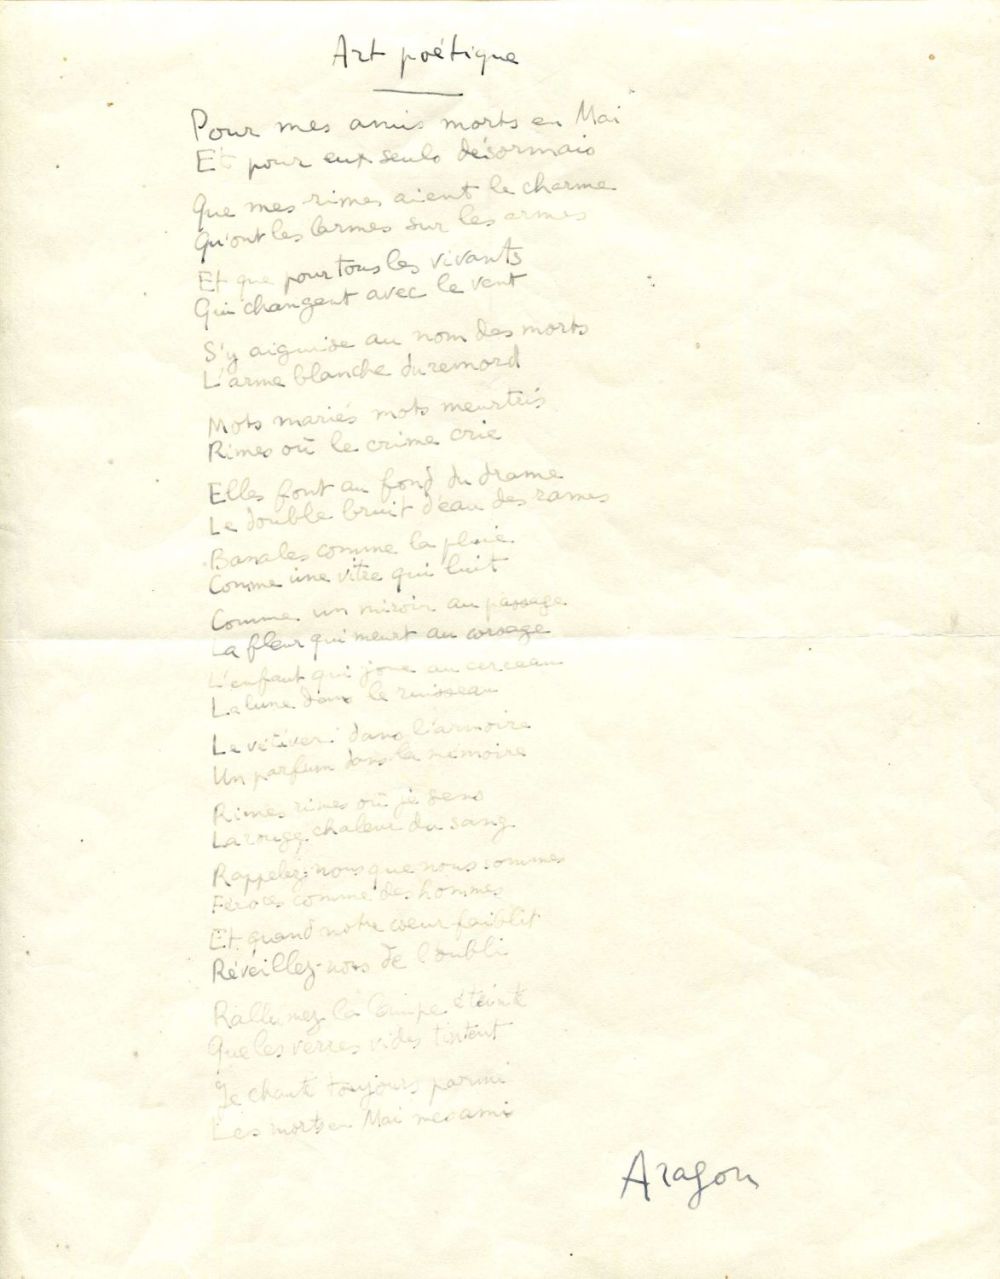 Art poétique
Pour mes amis morts en Mai
Et pour eux seuls désormais
Que mes rimes aient le charme
Qu'ont les larmes sur les armes
Et que pour tous les vivants
Qui changent avec le vent
S'y aiguise au nom des morts
L'arme blanche du remord
Mots mariés mots meurtris
Rimes où le crime crie
Elles font au fond du drame
Le double bruit d'eau des rames
Banales comme la pluie
Comme une vitre qui luit
Comme un miroir au passage
La fleur qui meurt au corsage
L'enfant qui joue au cerceau
La lune dans le ruisseau
Le vétiver dans l'armoire
Un parfum dans la mémoire
Rimes rimes où je sens
La rouge chaleur du sang
Rappelez-nous que nous sommes
Féroces comme des hommes
Et quand notre cœur faiblit
Réveillez-nous de l'oubli
Rallumez la lampe éteinte
Que les verres vides tintent
Je chante toujours parmi
Les morts en Mai mes amis
Aragon